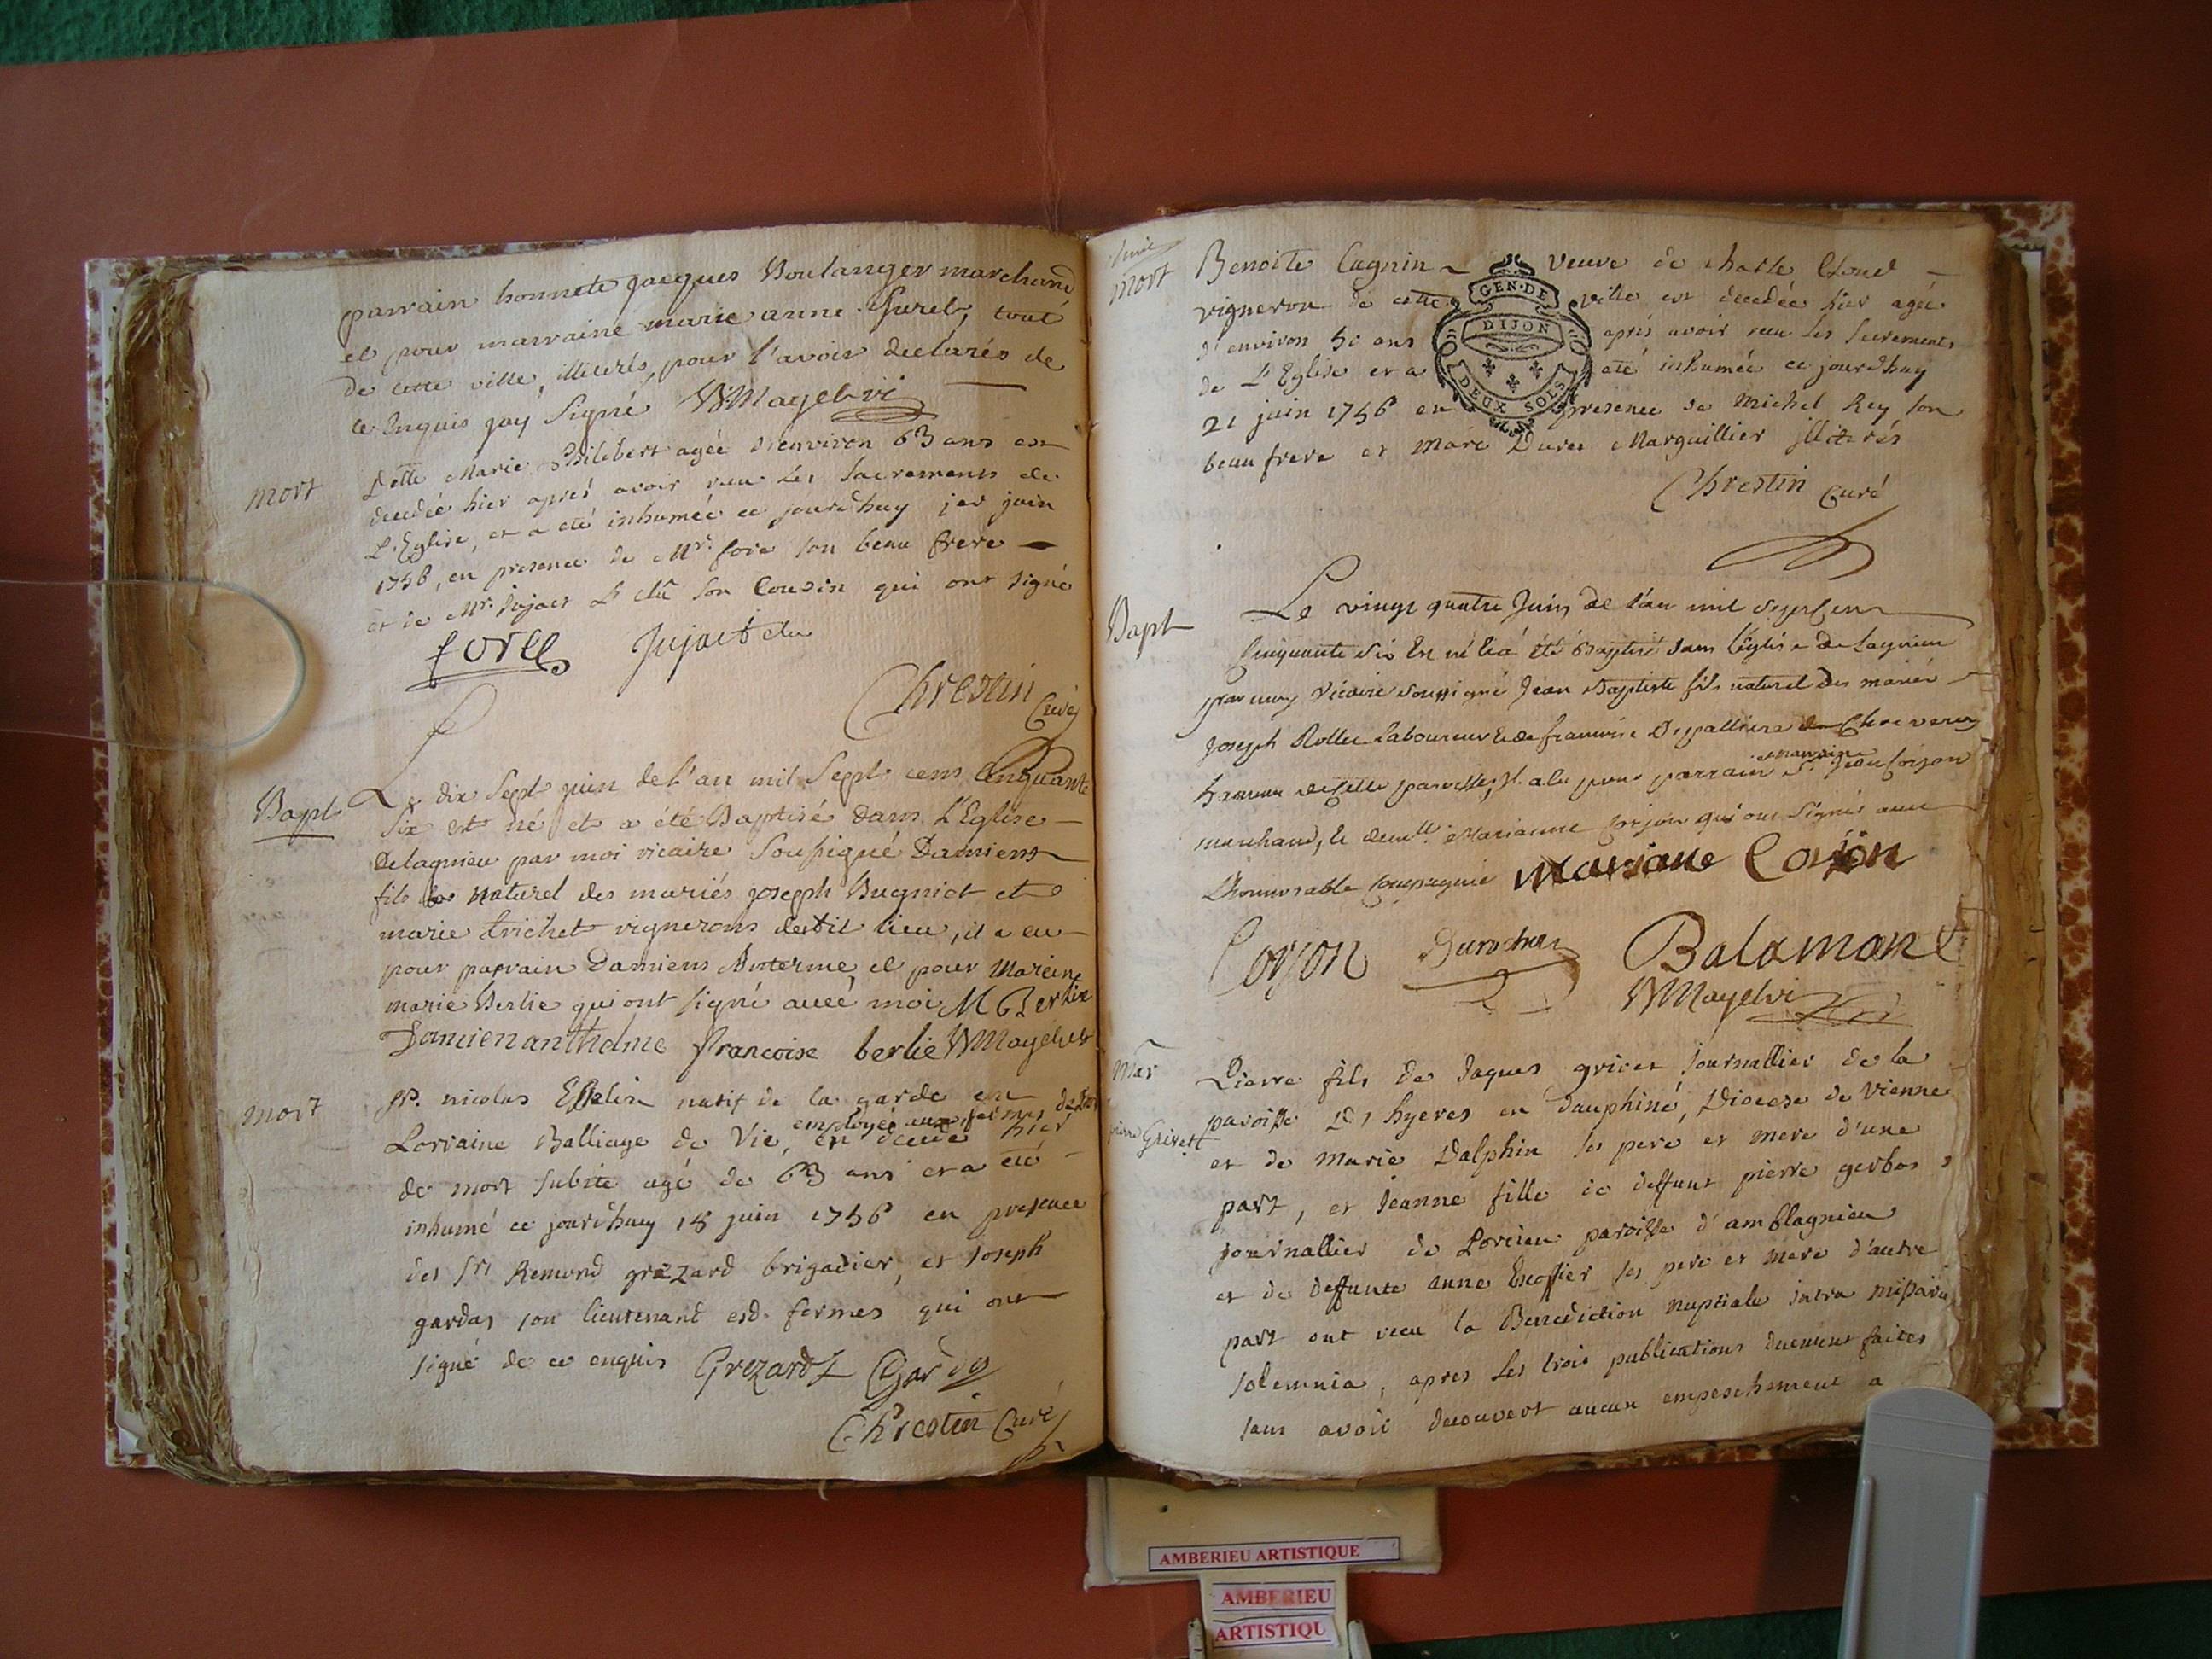 parrain honnete jacques Boulanger marchand
et pour marraine marie anne Guret, tout
de cette ville, illiterés, pour l'avoir declarés de
ce Inquis jay Signé VMayelvi
mort
Delle Marie Philibert agée d'environ 63 ans est
decedée hier aprés avoir receu les Sacrements de
L'Eglise, et a eté inhumée ce jourdhuy 1er juin
1756, en presence de Mr. fore son beau frere
et de Mr. Jujact L'elu son Cousin qui ont signé
fore Jujact elu
Chrestin Curé
Bapt
Le dix Sept juin de l'an mil Sept cens Cinquante
Six est né et a été Baptisé dans L'Eglise
Delagnieu par moi vicaire Soussigné Damiens
fils naturel des mariés joseph Bugniot et
marie trichet vignerons dudit lieu, il a eu
pour parrain Damiens Anterme et pour Mareine
marie Berlie qui ont signé avec moi M Berlie
Damien anthelme francoise berlie VMayelvi
mort
Sr. nicolas Esselin natif de la garde en
employé aux fermes du Roi
Lorraine Balliage de Vic, en decedé hier
de mort subite agé de 63 ans et a eté
inhumé ce jourdhuy 18 juin 1756 en presence
des Srs Remond grezard brigadier, et joseph
gardas son lieutenant esd. fermes qui ont
signé de ce enquis Grezard Gardas
Chrestin Curé
mort
Benoite Cagnin veuve de charle Cloud
vigneron de cette ville est decedée hier agée
d'environ 50 ans aprés avoir receu les sacrements
de L'Eglise et a eté inhumée ce jourdhuy
21 juin 1756 en presence de Michel Rey son
beau frere et Marc Duret Marguillier illiterés
GEN. DE
DIJON
DEUX SOLS
Chrestin Curé
Bapt
Le vingt quatre Juin de l'an mil Sept Cent
Cinquante Six Est né et a été Baptisé dans l'Eglise de Lagnieu
par moy Vicaire soussigné Jean Baptiste fils naturel des mariés
Joseph Rollet Laboureur et de francoise Dupallieres de Chocverey
hameau de cette paroisse, Il a Eu pour parrain Sr. Jean Corjon
marraine
marchand, et demlle. Marianne Corjon qui ont Signés avec
L'honnorable Compagnie Mariane Corjon
Corjon Durochat Balamant
VMayelvi
Mar
pierre Grivet
Pierre fils de Jaques grivet journallier de la
paroisse Des hyeres en Dauphiné, Diocese de Vienne
et de marie Dalphin ses pere et mere d'une
part, et jeanne fille de deffunt pierre gerbos,
journallier de Lorcieu paroisse d'amblagnieu
et de deffunte anne Escoffier ses pere et mere d'autre
part ont receu la Benediction nuptiale intra missarum
solemnia, apres les trois publications duement faites
sans avoir decouvert aucun empeschement a
AMBERIEU ARTISTIQUE
AMBERIEU
ARTISTIQU